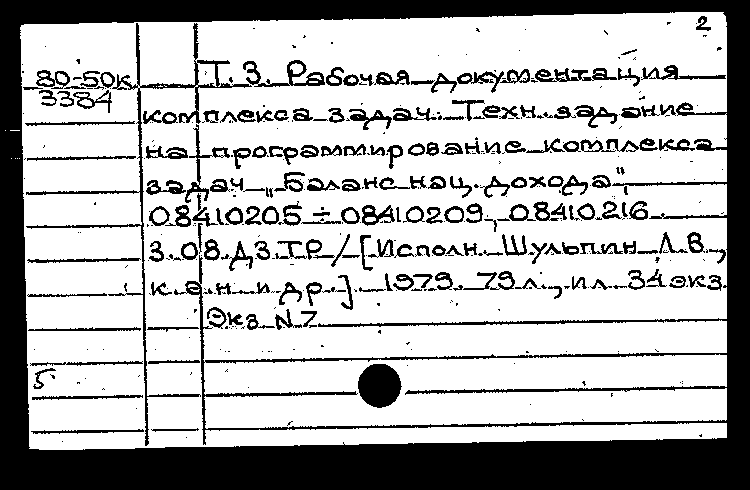 2
80-50к Т. 3. Рабочая документация
3384
комплекса задач. Техн. задание
на программирование комплекса
задач „Баланс нац. дохода",
08410205 ÷ 08410209, 08410216.
3.08.ДЗ.ТР / [Исполн. Шульпин Л.В.,
к.э.н. и др.] 1979. 79 л., ил. 34 экз.
Экз. N 7
5